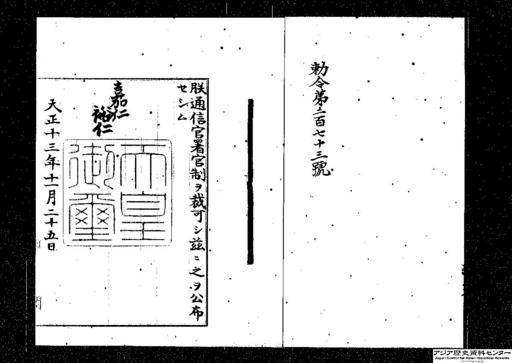 勅令第二百七十三號
朕通信官署官制ヲ裁可シ茲ニ之ヲ公布
セシム
嘉仁
裕仁
天皇
御璽
大正十三年十一月二十五日
アジア歴史資料センター
Japan Center for Asian Historical Records